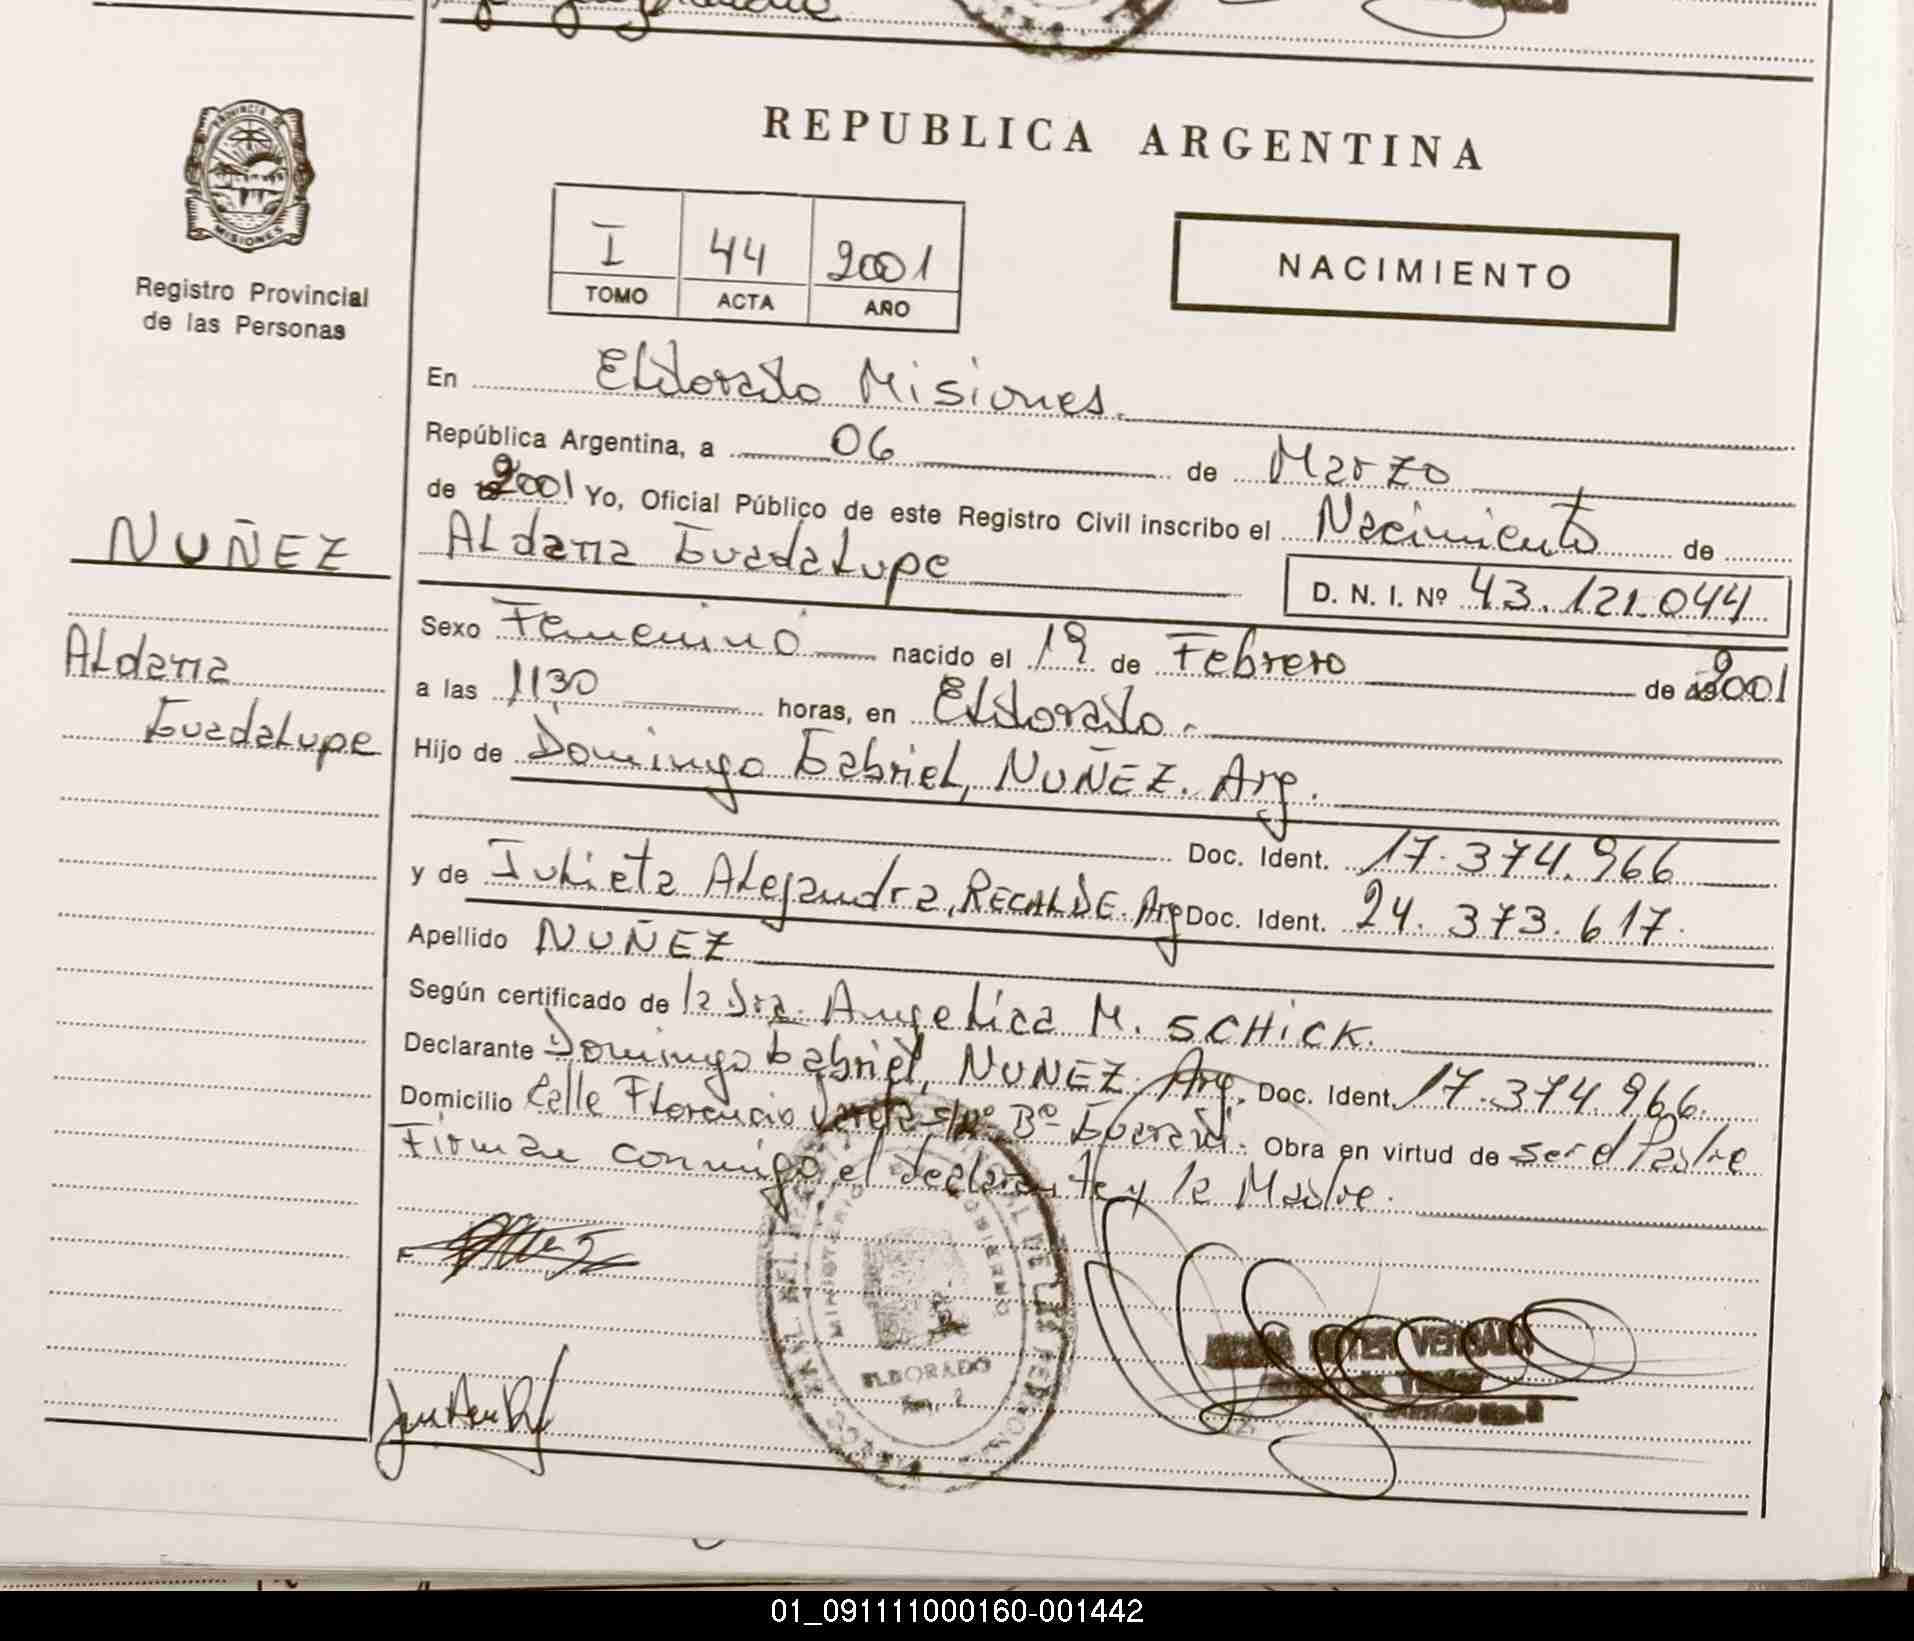 PROVINCIA DE
MISIONES
Registro Provincial
de las Personas
REPUBLICA ARGENTINA
I 44 2001
TOMO ACTA AÑO
NACIMIENTO
En Eldorado Misiones.
República Argentina, a 06 de Marzo
de 2001 Yo, Oficial Público de este Registro Civil inscribo el Nacimiento de
NUÑEZ
Aldana Guadalupe
D. N. I. Nº 43.121.044
Sexo Femenino nacido el 19 de Febrero de 2001
Aldana
Guadalupe
a las 1130 horas, en Eldorado.
Hijo de Domingo Gabriel, NUÑEZ. Arg.
Doc. Ident. 17.374.966
y de Julieta Alejandra, RECALDE. Arg Doc. Ident. 24.373.617.
Apellido NUÑEZ
Según certificado de la Dra. Angelica M. SCHICK.
Declarante Domingo Gabriel, NUNEZ. Arg. Doc. Ident. 17.374.966.
Domicilio Calle Florencio Varela s/nº Bº Guarani. Obra en virtud de ser el Padre
Firman conmigo el declarante y la Madre.
MINISTERIO GOBIERNO
ELDORADO
01_091111000160-001442